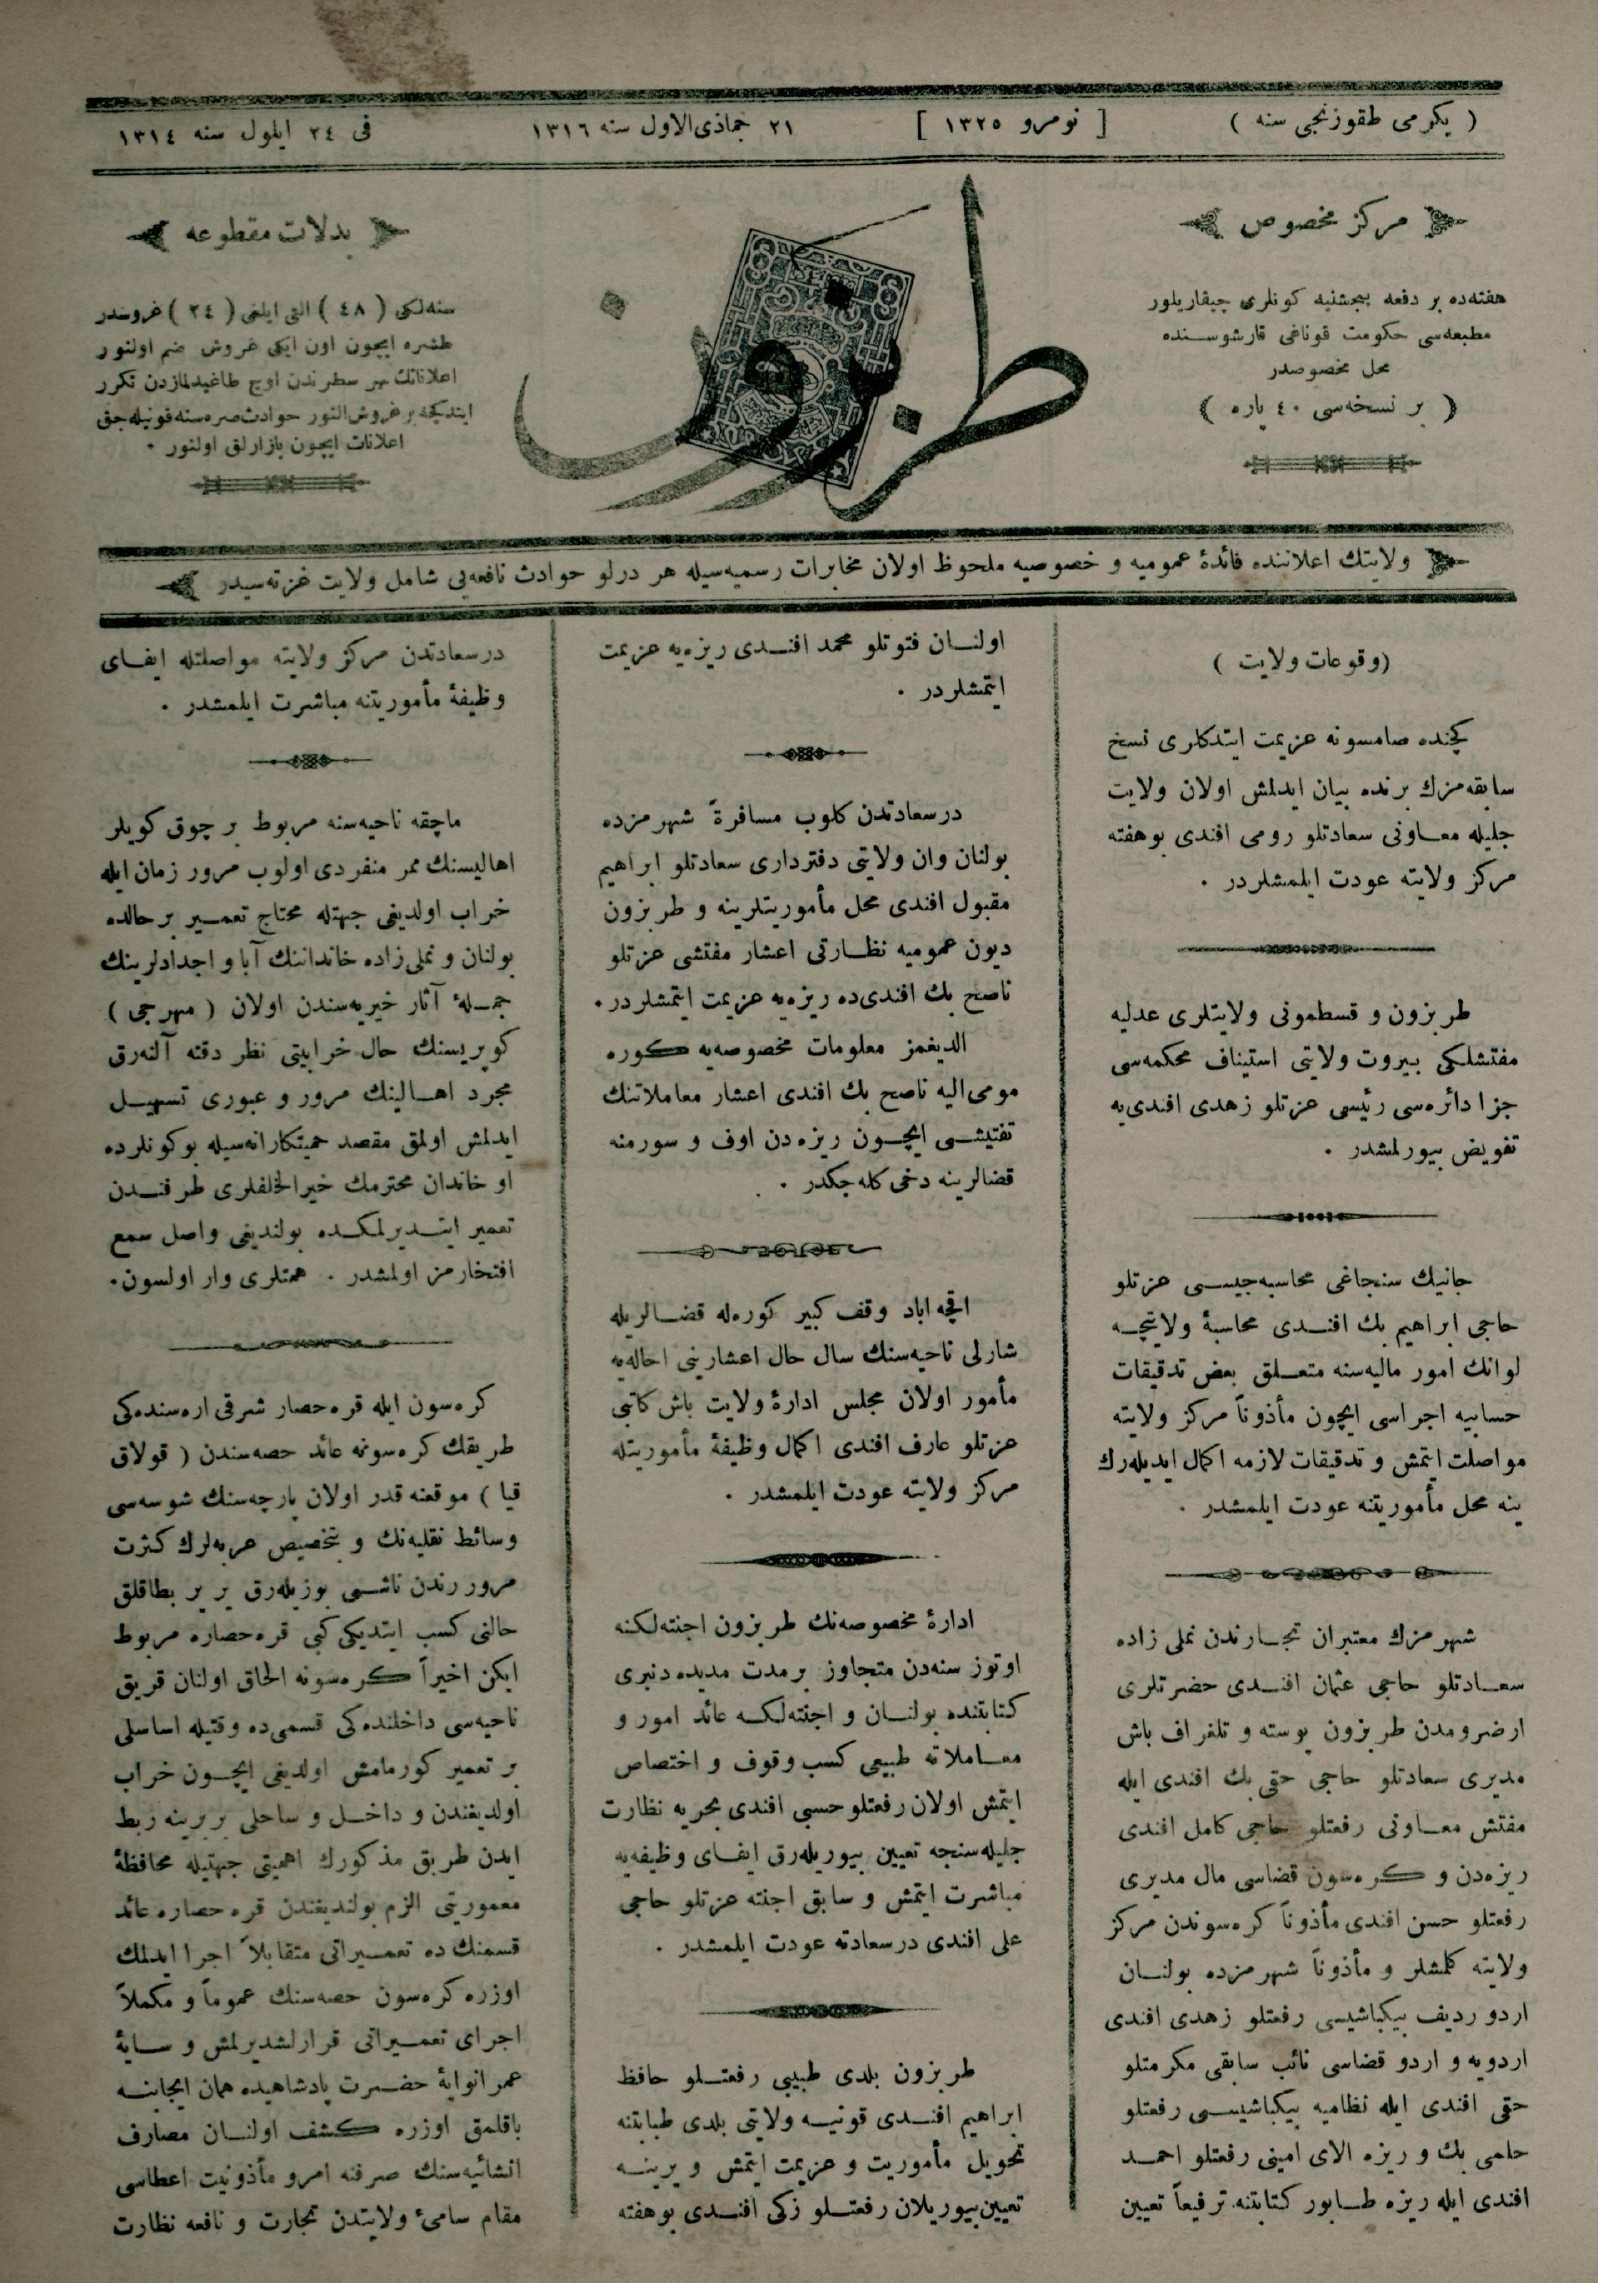 ( يكرمی طقوزنجی سنه )
[ نومرو ١٣٢٥ ]
٢١ جماذی‌الاول سنه ١٣١٦
فی ٢٤ ايلول سنه ١٣١٤
مركز مخصوص
هفته‌ده بر دفعه پنجشنبه كونلری چيقاريلور
مطبعه‌سی حكومت قوناغی قارشوسنده
محل مخصوصدر
( بر نسخه‌سی ٤٠ پاره )
طربزون
بدلات مقطوعه
سنه‌لكی ( ٤٨ ) التی ايلغی ( ٢٤ ) غروشدر
طشره ايچون اون ايكی غروش ضم اولنور
اعلاناتك هر سطرندن اوچ طاغيدلمازدن تكرر
ايتدكجه بر غروش النور حوادث صره‌سنه قونيله‌جق
اعلانات ايچون بازارلق اولنور ٠
ولايتك اعلاننده فائدۀ عموميه و خصوصيه ملحوظ اولان مخابرات رسميه‌سيله هر درلو حوادث نافعه‌یی شامل ولايت غزته‌سيدر
(وقوعات ولايت )
كچنده صامسونه عزيمت ايتدكلری نسخ
سابقه‌مزك برنده بيان ايدلمش اولان ولايت
جليله معاونی سعادتلو رومی افندی بو هفته
مركز ولايته عودت ايلمشلردر ٠
طربزون و قسطمونی ولايتلری عدليه
مفتشلكی بيروت ولايتی استيناف محكمه‌سی
جزا دائره‌سی رئيسی عزتلو زهدی افندی‌يه
تفويض بيورلمشدر ٠
جانيك سنجاغی محاسبه‌جيسی عزتلو
حاجی ابراهيم بك افندی محاسبۀ ولايتجه
لوانك امور ماليه‌سنه متعلق بعض تدقيقات
حسابيه اجراسی ايچون مأذوناً مركز ولايته
مواصلت ايتمش و تدقيقات لازمه اكمال ايديله‌رك
ينه محل مأموريتنه عودت ايلمشدر ٠
شهرمزك معتبران تجارندن نملی زاده
سعادتلو حاجی عثمان افندی حضرتلری
ارضرومدن طربزون پوسته و تلغراف باش
مديری سعادتلو حاجی حقی بك افندی ايله
مفتش معاونی رفعتلو حاجی كامل افندی
ريزه‌دن و كره‌سون قضاسی مال مديری
رفعتلو حسن افندی مأذوناً كره‌سوندن مركز
ولايته كلمشلر و مأذوناً شهرمزده بولنان
اردو رديف بيكباشيسی رفعتلو زهدی افندی
اردويه و اردو قضاسی نائب سابقی مكرمتلو
حقی افندی ايله نظاميه بيكباشيسی رفعتلو
حلمی بك و ريزه الای امينی رفعتلو احمد
افندی ايله ريزه طابور كتابتنه ترفيعاً تعيين
اولنان فتوتلو محمد افندی ريزه‌يه عزيمت
ايتمشلردر ٠
درسعادتدن كلوب مسافرةً شهرمزده
بولنان وان ولايتی دفترداری سعادتلو ابراهيم
مقبول افندی محل مأموريتلرينه و طربزون
ديون عموميه نظارتی اعشار مفتشی عزتلو
ناصح بك افندی‌ده ريزه‌يه عزيمت ايتمشلردر ٠
الديغمز معلومات مخصوصه‌يه كوره
مومی‌اليه ناصح بك افندی اعشار معاملاتنك
تفتيشی ايچون ريزه‌دن اوف و سورمنه
قضالرينه دخی كله‌جكدر ٠
اقچه‌اباد وقف كبير كوره‌له قضالريله
شارلی ناحيه‌سنك سال حال اعشارينی احاله‌يه
مأمور اولان مجلس ادارۀ ولايت باش كاتبی
عزتلو عارف افندی اكمال وظيفۀ مأموريتله
مركز ولايته عودت ايلمشدر ٠
ادارۀ مخصوصه‌نك طربزون اجنته‌لكنه
اوتوز سنه‌دن متجاوز بر مدت مديده‌دنبری
كتابتنده بولنان و اجنته‌لكه عائد امور و
معاملاته طبيعی كسب وقوف و اختصاص
ايتمش اولان رفعتلو حسبی افندی بحريه نظارت
جليله‌سنجه تعيين بيوريله‌رق ايفای وظيفه‌يه
مباشرت ايتمش و سابق اجنته عزتلو حاجی
علی افندی درسعادته عودت ايلمشدر ٠
طربزون بلدی طبيبی رفعتلو حافظ
ابراهيم افندی قونيه ولايتی بلدی طبابتنه
تحويل مأموريت و عزيمت ايتمش و يرينه
تعيين بيوريلان رفعتلو زكی افندی بو هفته
درسعادتدن مركز ولايته مواصلتله ايفای
وظيفۀ مأموريتنه مباشرت ايلمشدر ٠
ماچقه ناحيه‌سنه مربوط بر چوق كويلر
اهاليسنك ممر منفردی اولوب مرور زمان ايله
خراب اولديغی جهتله محتاج تعمير بر حالده
بولنان و نملی‌زاده خانداننك آبا و اجدادلرينك
جملۀ آثار خيريه‌سندن اولان ( مهرجی )
كوپريسنك حال خرابيتی نظر دقته آلنه‌رق
مجرد اهالينك مرور و عبوری تسهيل
ايدلمش اولمق مقصد حميتكارانه‌سيله بو كونلرده
او خاندان محترمك خيرالخلفلری طرفندن
تعمير ايتديرلمكده بولنديغی واصل سمع
افتخارمز اولمشدر ٠ همتلری وار اولسون ٠
كره‌سون ايله قره‌حصار شرقی اره‌سنده‌كی
طريقك كره‌سونه عائد حصه‌سندن ( قولاق
قيا ) موقعنه قدر اولان پارچه‌سنك شوسه‌سی
وسائط نقليه‌نك و بتخصيص عربه‌لرك كثرت
مرورندن ناشی بوزيله‌رق ير ير بطاقلق
حالنی كسب ايتديكی كبی قره‌حصاره مربوط
ايكن اخيراً كره‌سونه الحاق اولنان قريق
ناحيه‌سی داخلنده‌كی قسمی‌ده وقتيله اساسلی
بر تعمير كورمامش اولديغی ايچون خراب
اولديغندن و داخل و ساحلی بربرينه ربط
ايدن طريق مذكورك اهميتی جهتيله محافظۀ
معموريتی الزم بولنديغندن قره‌حصاره عائد
قسمنك ده تعميراتی متقابلاً اجرا ايدلمك
اوزره كره‌سون حصه‌سنك عموماً و مكملاً
اجرای تعميراتی قرارلشديرلمش و سايۀ
عمرانوايۀ حضرت پادشاهيده همان ايجابنه
باقلمق اوزره كشف اولنان مصارف
انشائيه‌سنك صرفنه امر و مأذونيت اعطاسی
مقام سامئ ولايتدن تجارت و نافعه نظارت